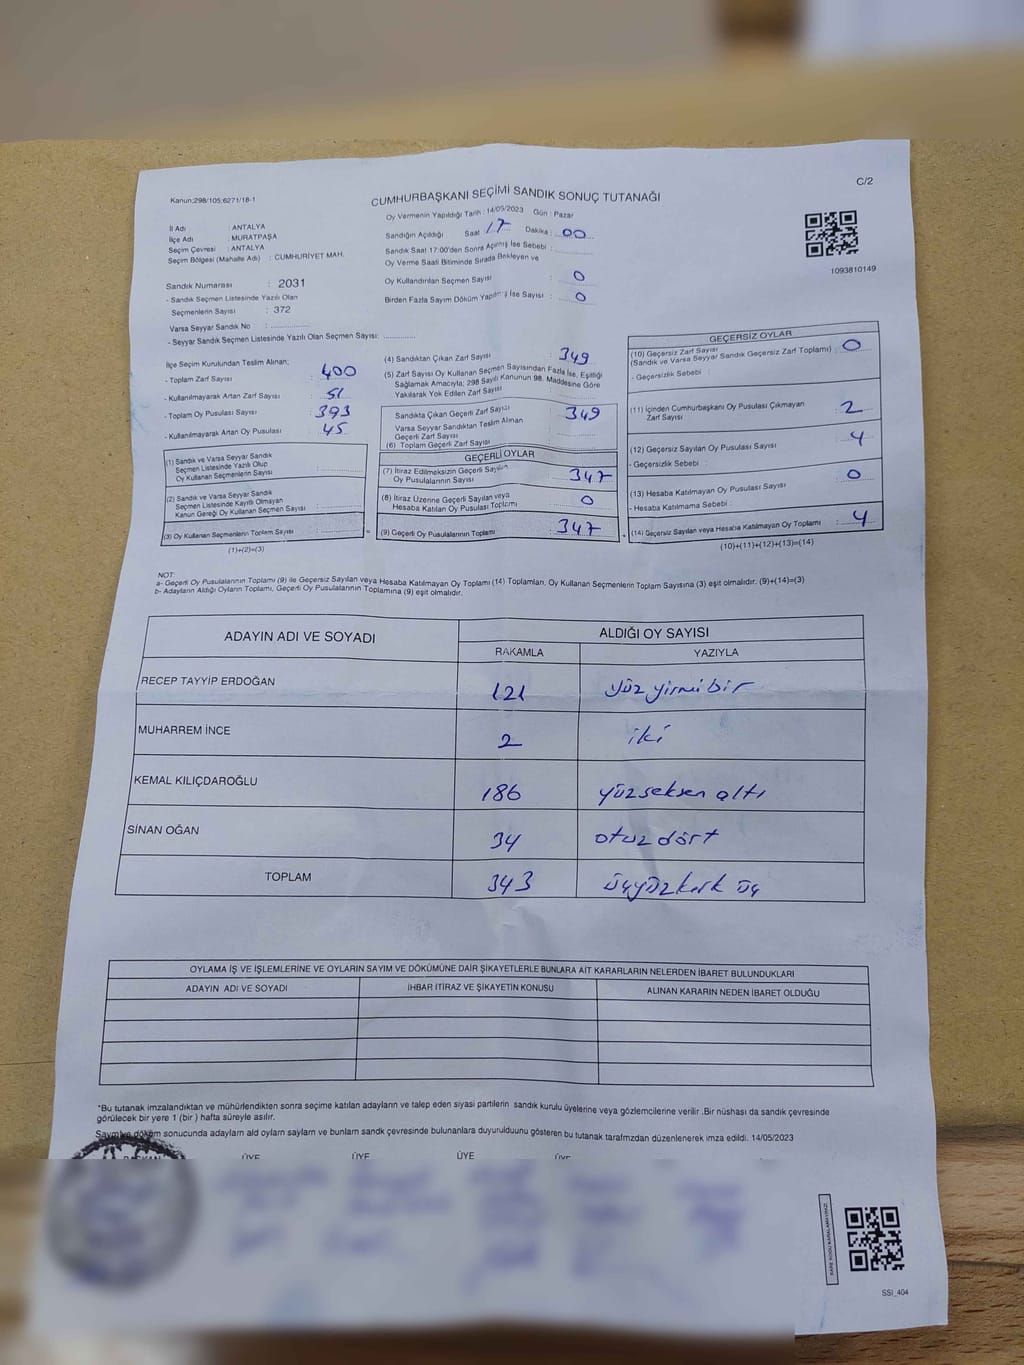 C/2
Kanun;298/105;6271/18-1
CUMHURBAŞKANI SEÇİMİ SANDIK SONUÇ TUTANAĞI
Oy Vermenin Yapıldığı Tarih : 14/05/2023 Gün : Pazar
İl Adı : ANTALYA
İlçe Adı : MURATPAŞA
Seçim Çevresi : ANTALYA
Seçim Bölgesi (Mahalle Adı) : CUMHURİYET MAH.
Sandığın Açıldığı Saat : 17 Dakika : 00
Sandık Saat 17:00'den Sonra Açılmış İse Sebebi :
Oy Verme Saati Bitiminde Sırada Bekleyen ve
Oy Kullandırılan Seçmen Sayısı : 0
Birden Fazla Sayım Döküm Yapılmış İse Sayısı : 0
1093810149
Sandık Numarası : 2031
- Sandık Seçmen Listesinde Yazılı Olan
Seçmenlerin Sayısı : 372
Varsa Seyyar Sandık No :
- Seyyar Sandık Seçmen Listesinde Yazılı Olan Seçmen Sayısı:
İlçe Seçim Kurulundan Teslim Alınan;
- Toplam Zarf Sayısı : 400
- Kullanılmayarak Artan Zarf Sayısı : 51
- Toplam Oy Pusulası Sayısı : 393
- Kullanılmayarak Artan Oy Pusulası : 45
(1) Sandık ve Varsa Seyyar Sandık
Seçmen Listesinde Yazılı Olup
Oy Kullanan Seçmenlerin Sayısı :
(2) Sandık ve Varsa Seyyar Sandık
Seçmen Listesinde Kayıtlı Olmayan
Kanun Gereği Oy Kullanan Seçmen Sayısı :
(3) Oy Kullanan Seçmenlerin Toplam Sayısı :
(1)+(2)=(3)
(4) Sandıktan Çıkan Zarf Sayısı : 349
(5) Zarf Sayısı Oy Kullanan Seçmen Sayısından Fazla İse, Eşitliği
Sağlamak Amacıyla; 298 Sayılı Kanunun 98. Maddesine Göre
Yakılarak Yok Edilen Zarf Sayısı :
Sandıkta Çıkan Geçerli Zarf Sayısı : 349
Varsa Seyyar Sandıktan Teslim Alınan
Geçerli Zarf Sayısı :
(6) Toplam Geçerli Zarf Sayısı :
GEÇERLİ OYLAR
(7) İtiraz Edilmeksizin Geçerli Sayılan
Oy Pusulalarının Sayısı : 347
(8) İtiraz Üzerine Geçerli Sayılan veya
Hesaba Katılan Oy Pusulası Toplamı : 0
(9) Geçerli Oy Pusulalarının Toplamı : 347
GEÇERSİZ OYLAR
(10) Geçersiz Zarf Sayısı
(Sandık ve Varsa Seyyar Sandık Geçersiz Zarf Toplamı) : 0
- Geçersizlik Sebebi :
(11) İçinden Cumhurbaşkanı Oy Pusulası Çıkmayan
Zarf Sayısı : 2
(12) Geçersiz Sayılan Oy Pusulası Sayısı : 4
- Geçersizlik Sebebi :
(13) Hesaba Katılmayan Oy Pusulası Sayısı : 0
- Hesaba Katılmama Sebebi :
(14) Geçersiz Sayılan veya Hesaba Katılmayan Oy Toplamı : 4
(10)+(11)+(12)+(13)=(14)
NOT:
a- Geçerli Oy Pusulalarının Toplamı (9) ile Geçersiz Sayılan veya Hesaba Katılmayan Oy Toplamı (14) Toplamları, Oy Kullanan Seçmenlerin Toplam Sayısına (3) eşit olmalıdır. (9)+(14)=(3)
b- Adayların Aldığı Oyların Toplamı, Geçerli Oy Pusulalarının Toplamına (9) eşit olmalıdır.
ADAYIN ADI VE SOYADI ALDIĞI OY SAYISI
RAKAMLA YAZIYLA
RECEP TAYYİP ERDOĞAN 121 yüz yirmi bir
MUHARREM İNCE 2 iki
KEMAL KILIÇDAROĞLU 186 yüzseksen altı
SİNAN OĞAN 34 otuz dört
TOPLAM 343 üçyüzkırk üç
OYLAMA İŞ VE İŞLEMLERİNE VE OYLARIN SAYIM VE DÖKÜMÜNE DAİR ŞİKAYETLERLE BUNLARA AİT KARARLARIN NELERDEN İBARET BULUNDUKLARI
ADAYIN ADI VE SOYADI İHBAR İTİRAZ VE ŞİKAYETİN KONUSU ALINAN KARARIN NEDEN İBARET OLDUĞU
*Bu tutanak imzalandıktan ve mühürlendikten sonra seçime katılan adayların ve talep eden siyasi partilerin sandık kurulu üyelerine veya gözlemcilerine verilir .Bir nüshası da sandık çevresinde
görülecek bir yere 1 (bir ) hafta süreyle asılır.
Sayım ve döküm sonucunda adayların ald oyların sayların ve bunların sandk çevresinde bulunanlara duyurulduunu gösteren bu tutanak tarafmzdan düzenlenerek imza edildi. 14/05/2023
BAŞKAN ÜYE ÜYE ÜYE ÜYE
KARE KODU KARALAMAYINIZ!
SSI_404